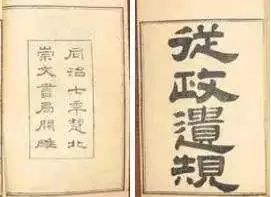 從政遺規
同治七秊楚北
崇文書局開雕